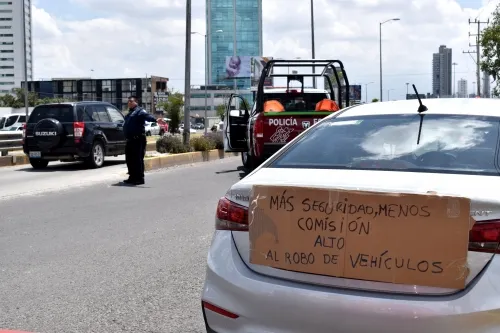 POLICÍA
MÁS SEGURIDAD, MENOS
COMISIÓN
ALTO
AL ROBO DE VEHÍCULOS